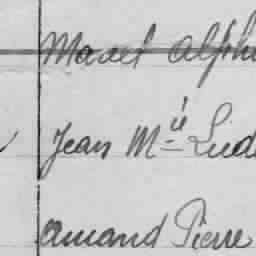 Marcel Alph
Jean Mie Lud
Amand Pierre